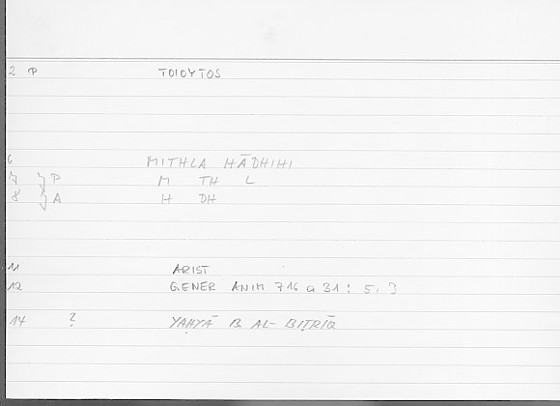 2 P TOIOYTOS
6 MITHLA HĀDHIHI
7 } P M TH L
8 } A H DH
11 ARIST
12 GENER ANIM 716 a 31 : 5, 3
14 ? YAḤYĀ B. AL-BIṬRĪQ